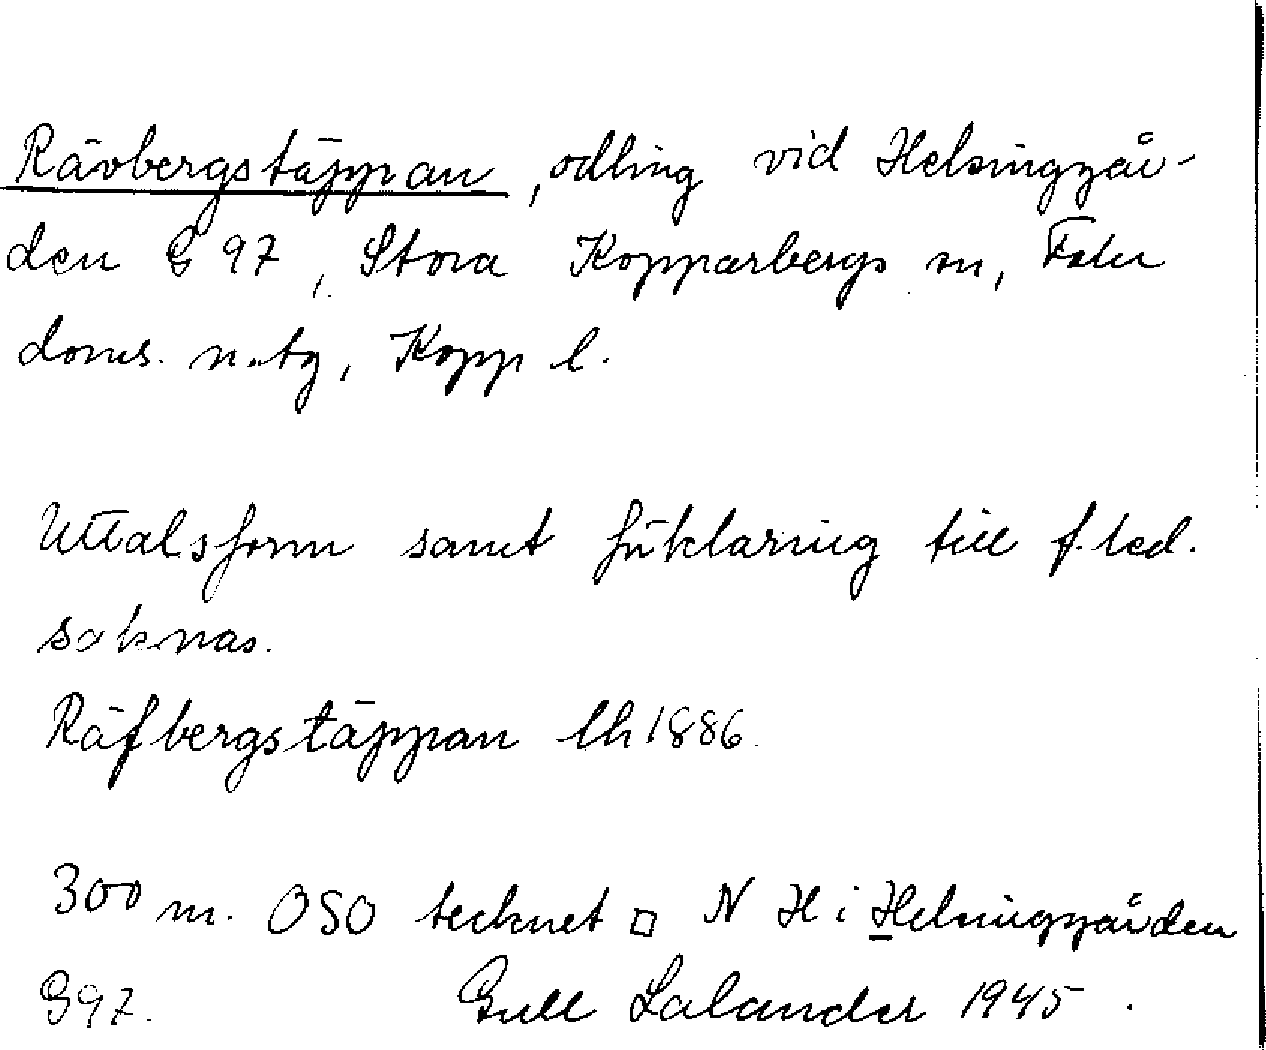 Rävbergstäppan, odling vid Helsinggår-
den G 97, Stora Kopparbergs sn, Falu
doms. n. tg, Kopp l.
Uttalsform samt förklaring till f. led.
saknas.
Räfbergstäppan lh 1886.
300 m. OSO tecknet □ N H i Helsinggården
G97. Gull Lalander 1945.